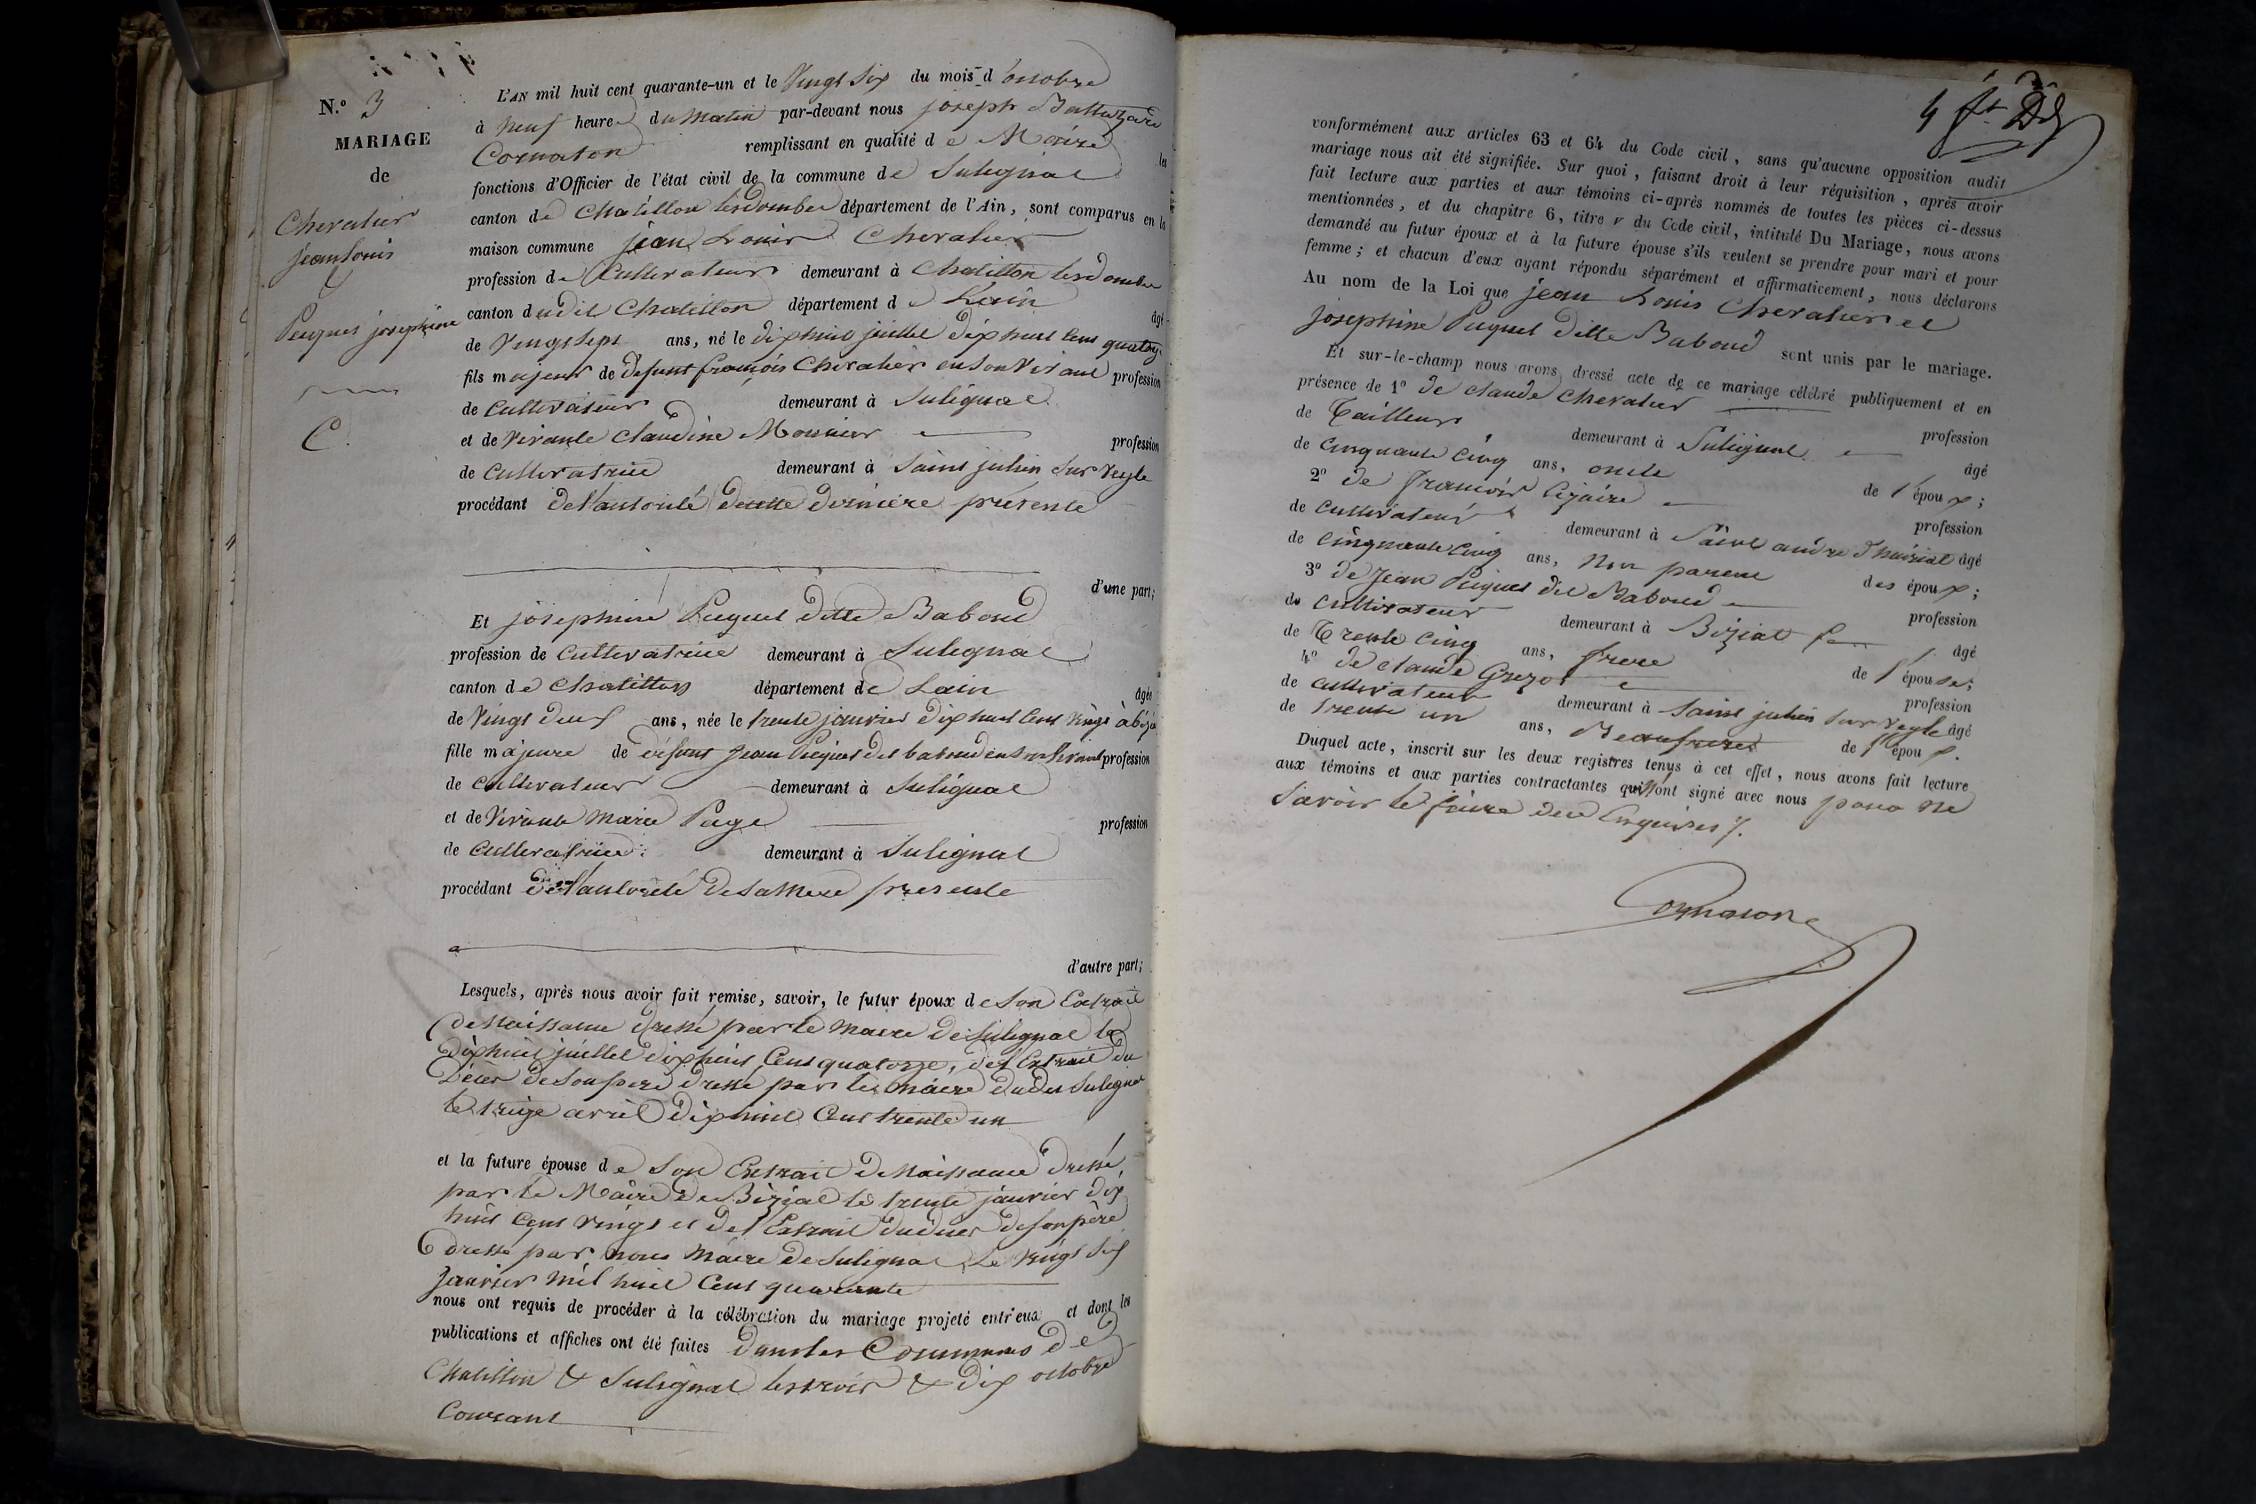 N.º 3
MARIAGE
de
Chevalier
jean louis
&
Puquet josephine
C.
L'AN mil huit cent quarante-un et le Vingt Six du mois d'octobre
à neuf heures du matin par-devant nous joseph Balthazard
Cornaton remplissant en qualité de Maire les
fonctions d'Officier de l'état civil de la commune de Sulignat
canton de Chatillon lesdombes département de l'Ain, sont comparus en la
maison commune jean Louis Chevalier
profession de Cultivateur demeurant à Chatillon lesdombes
canton dudit Chatillon département de Lain âgé
de Vingt Sept ans, né le dix huit juillet dix huit Cent quatorze
fils majeur de defunt françois Chevalier en son Vivant profession
de Cultivateur demeurant à Sulignat
et de Vivante Claudine Monnier profession
de Cultivatrice demeurant à Saint julien Sur Veyle
procédant de l'autorité de cette dernière présente
d'une part;
Et josephine Puquet ditte Baboud
profession de Cultivatrice demeurant à Sulignat
canton de Chatillon département de Lain âgée
de Vingt deux ans, née le trente janvier dix huit Cent vingt à Biziat
fille majeure de défunt jean Puquet dit baboud en son Vivant profession
de Cultivateur demeurant à Sulignat
et de Vivante Marie Page profession
de Cultivatrice demeurant à Sulignat
procédant de l'autorité de sa Mere presente
d'autre part;
Lesquels, après nous avoir fait remise, savoir, le futur époux de Son Extrait
de Naissance dressé par le Maire de Sulignat le
dix huit juillet dix huit Cent quatorze, de l'Extrait du
Décès de Son pere dressé par le maire dudit Sulignat
le treize avril dix huit Cent trente un
et la future épouse de Son Extrait de Naissance dressé,
par le Maire de Biziat le trente janvier dix
huit Cent vingt et de l'Extrait du déces de son père
dressé par nous Maire de Sulignat Le vingt Six
Janvier mil huit Cent quarante
nous ont requis de procéder à la célébration du mariage projeté entr'eux et dont les
publications et affiches ont été faites dans les Communes de
Chatillon & Sulignat les trois & dix octobre
Courant
conformément aux articles 63 et 64 du Code civil, sans qu'aucune opposition audit
mariage nous ait été signifiée. Sur quoi, faisant droit à leur réquisition, après avoir
fait lecture aux parties et aux témoins ci-après nommés de toutes les pièces ci-dessus
mentionnées, et du chapitre 6, titre v du Code civil, intitulé Du Mariage, nous avons
demandé au futur époux et à la future épouse s'ils veulent se prendre pour mari et pour
femme; et chacun d'eux ayant répondu séparément et affirmativement, nous déclarons
Au nom de la Loi que jean Louis Chevalier et
josephine Puquet ditte Baboud sont unis par le mariage.
Et sur-le-champ nous avons dressé acte de ce mariage célébré publiquement et en
présence de 1º de claude Chevalier profession
de Tailleur demeurant à Sulignat âgé
de Cinquante Cinq ans, oncle de l'époux;
2º de françois profession
de Cultivateur demeurant à Saint andre d'huiriat âgé
de Cinquante Cinq ans, Non parent des époux;
3º de Jean Puquet dit Baboud profession
de Cultivateur demeurant à Biziat âgé
de Trente Cinq ans, frere de l'épouse;
4º de claude Grezot profession
de Cultivateur demeurant à Saint julien Sur Veyle âgé
de trente un ans, Beaufrere de l'époux.
Duquel acte, inscrit sur les deux registres tenus à cet effet, nous avons fait lecture
aux témoins et aux parties contractantes qui n'ont signé avec nous pour ne
Savoir le faire de ce Enquises /.
Cornaton